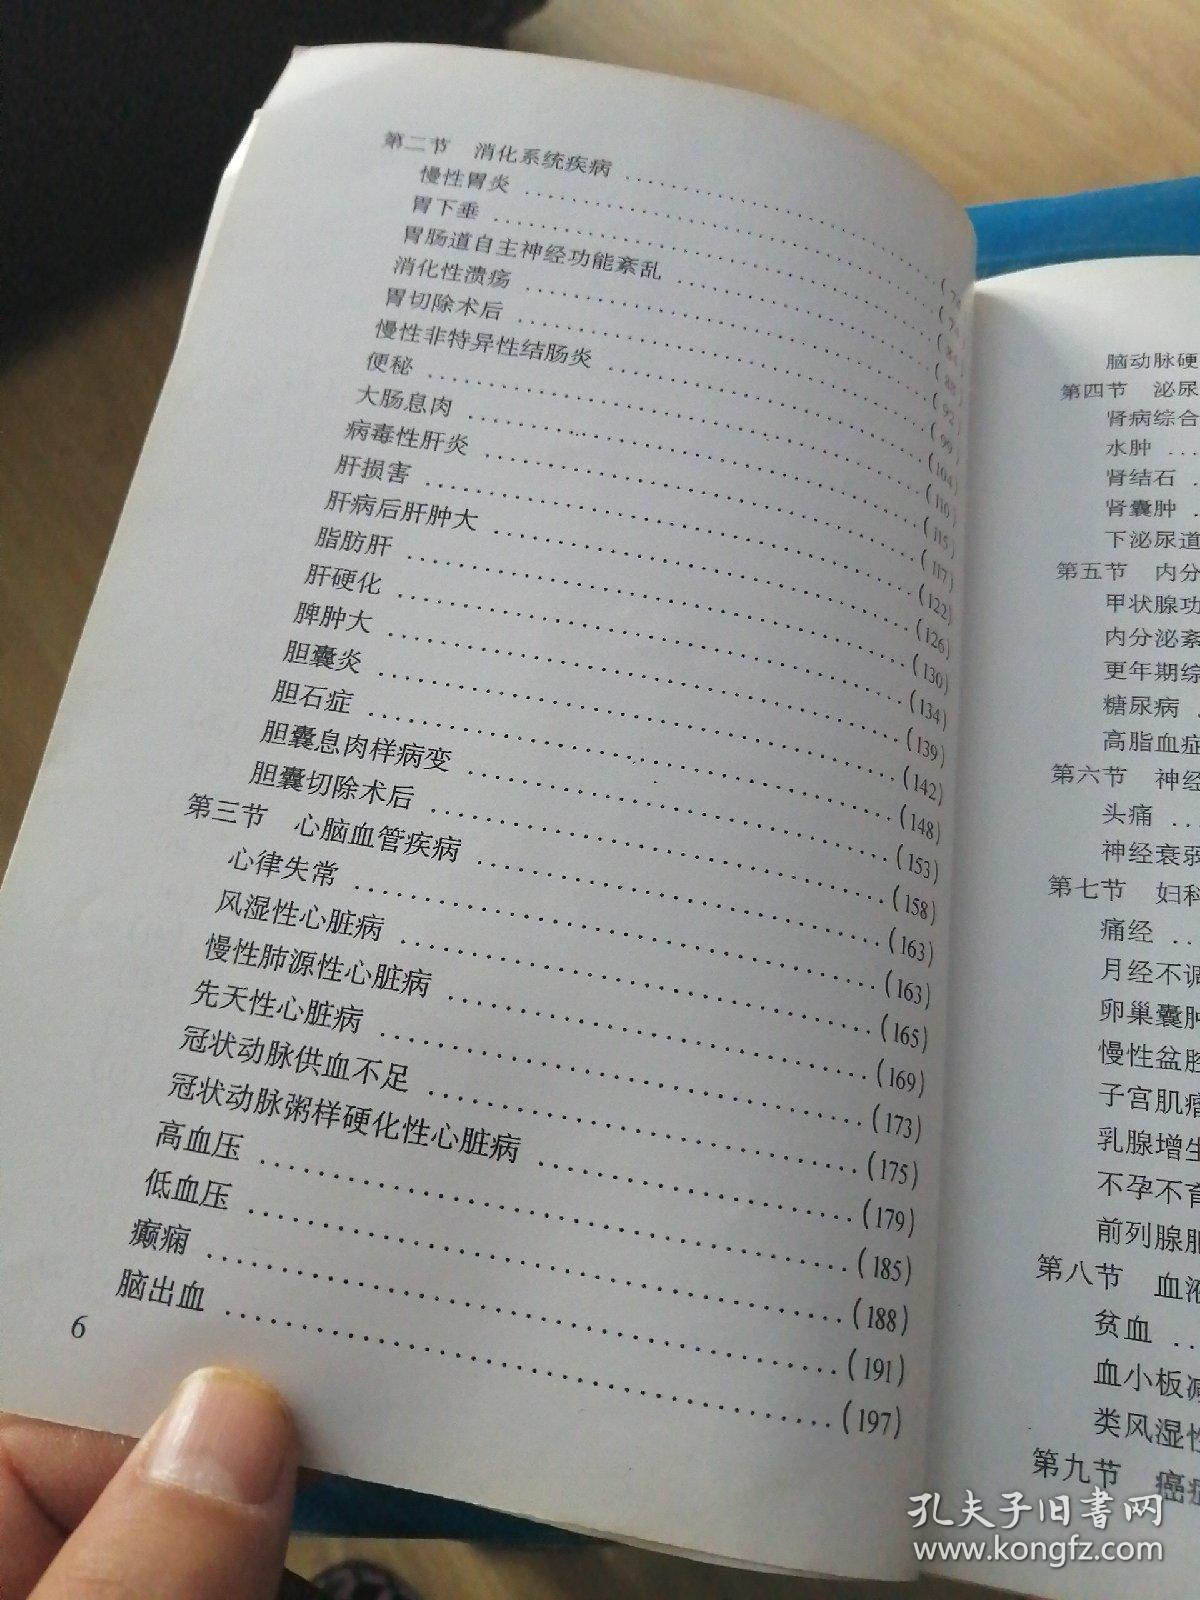 第二节 消化系统疾病
慢性胃炎
胃下垂 (84)
胃肠道自主神经功能紊乱 (88)
消化性溃疡 (92)
胃切除术后 (99)
慢性非特异性结肠炎 (104)
便秘 (110)
大肠息肉 (115)
病毒性肝炎 (117)
肝损害 (122)
肝病后肝肿大 (126)
脂肪肝 (130)
肝硬化 (134)
脾肿大 (139)
胆囊炎 (142)
胆石症 (148)
胆囊息肉样病变 (153)
胆囊切除术后 (158)
第三节 心脑血管疾病 (163)
心律失常 (163)
风湿性心脏病 (165)
慢性肺源性心脏病 (169)
先天性心脏病 (173)
冠状动脉供血不足 (175)
冠状动脉粥样硬化性心脏病 (179)
高血压 (185)
低血压 (188)
癫痫 (191)
脑出血 (197)
6
脑动脉硬
第四节 泌尿
肾病综合
水肿
肾结石
肾囊肿
下泌尿道
第五节 内分
甲状腺功
内分泌紊
更年期综
糖尿病
高脂血症
第六节 神经
头痛
神经衰弱
第七节 妇科
痛经
月经不调
卵巢囊肿
慢性盆腔
子宫肌瘤
乳腺增生
不孕不育
前列腺肥
第八节 血液
贫血
血小板减
类风湿性
第九节 癌症
孔夫子旧书网
www.kongfz.com